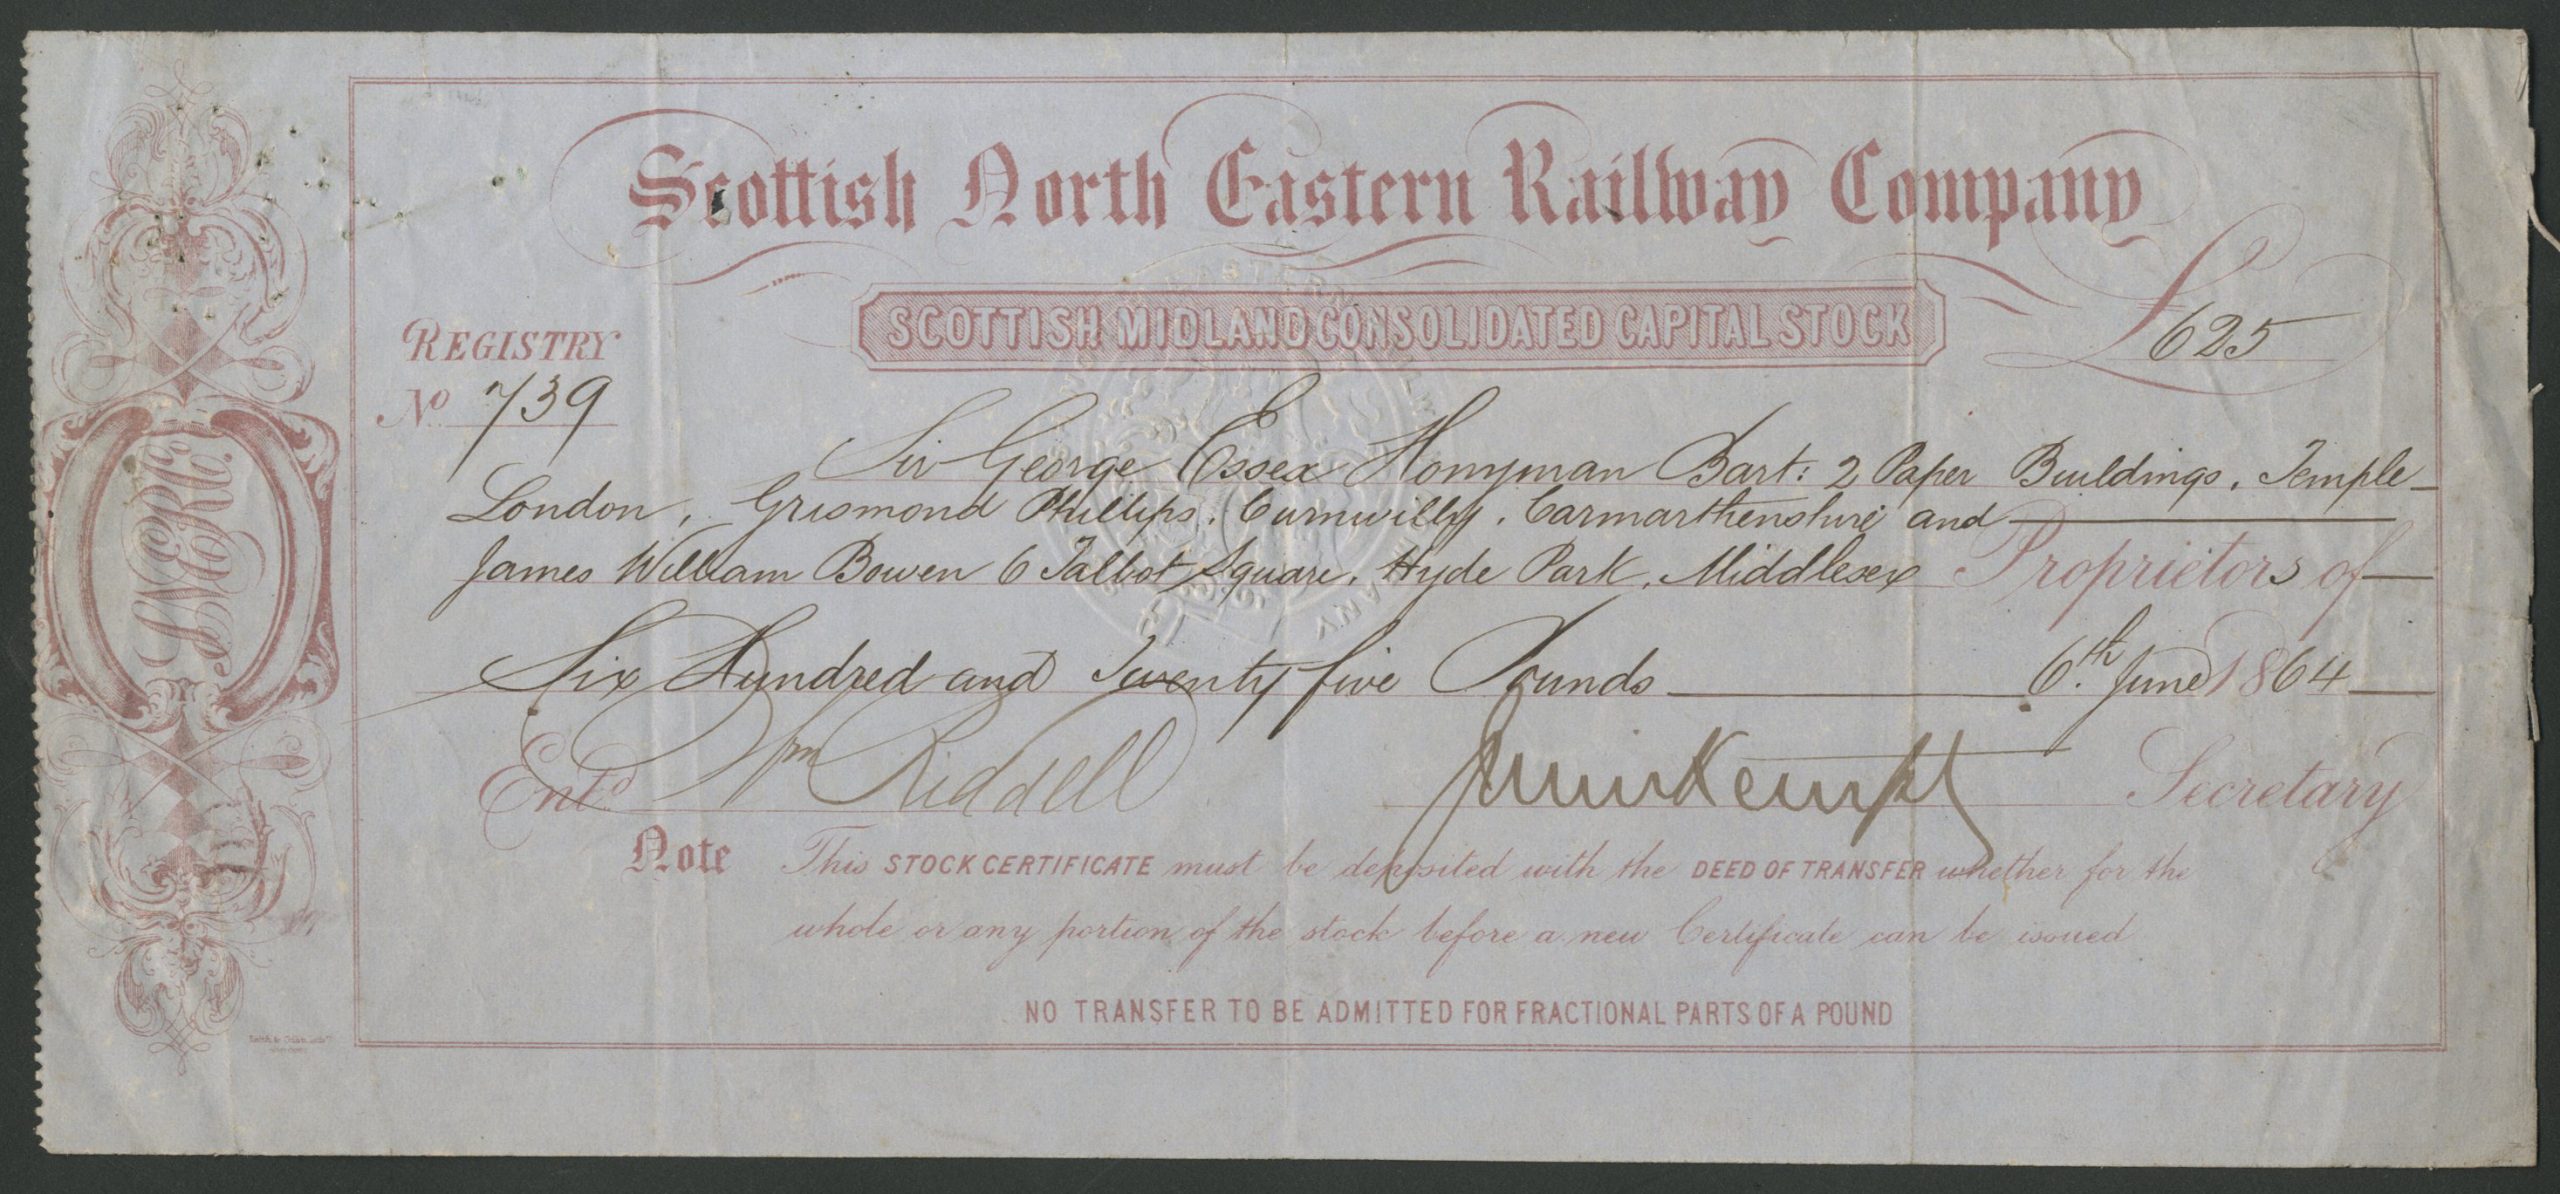 Scottish North Eastern Railway Company
SCOTTISH MIDLAND CONSOLIDATED CAPITAL STOCK
£625
REGISTRY
No 739
Sir George Essex Honyman Bart: 2 Paper Buildings, Temple
London, Grismond Phillips, Cwmwilly, Carmarthenshire and
James William Bowen 6 Talbot Square, Hyde Park, Middlesex Proprietors of
Six Hundred and Twenty five Pounds 6th June 1864
Entd Wm Riddell Secretary
Note This STOCK CERTIFICATE must be deposited with the DEED OF TRANSFER whether for the
whole or any portion of the stock before a new Certificate can be issued
NO TRANSFER TO BE ADMITTED FOR FRACTIONAL PARTS OF A POUND